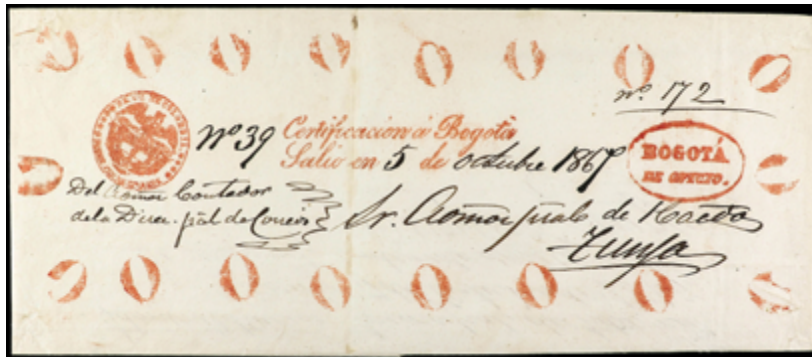 nº 172
nº 39 Certificacion á Bogotá
Salio en 5 de octubre 1867
BOGOTÁ
DE OFICIO.
Del Admor Contador
de la Direc. pral de Correos
Sr. Admor pral de Hacda
Tunja